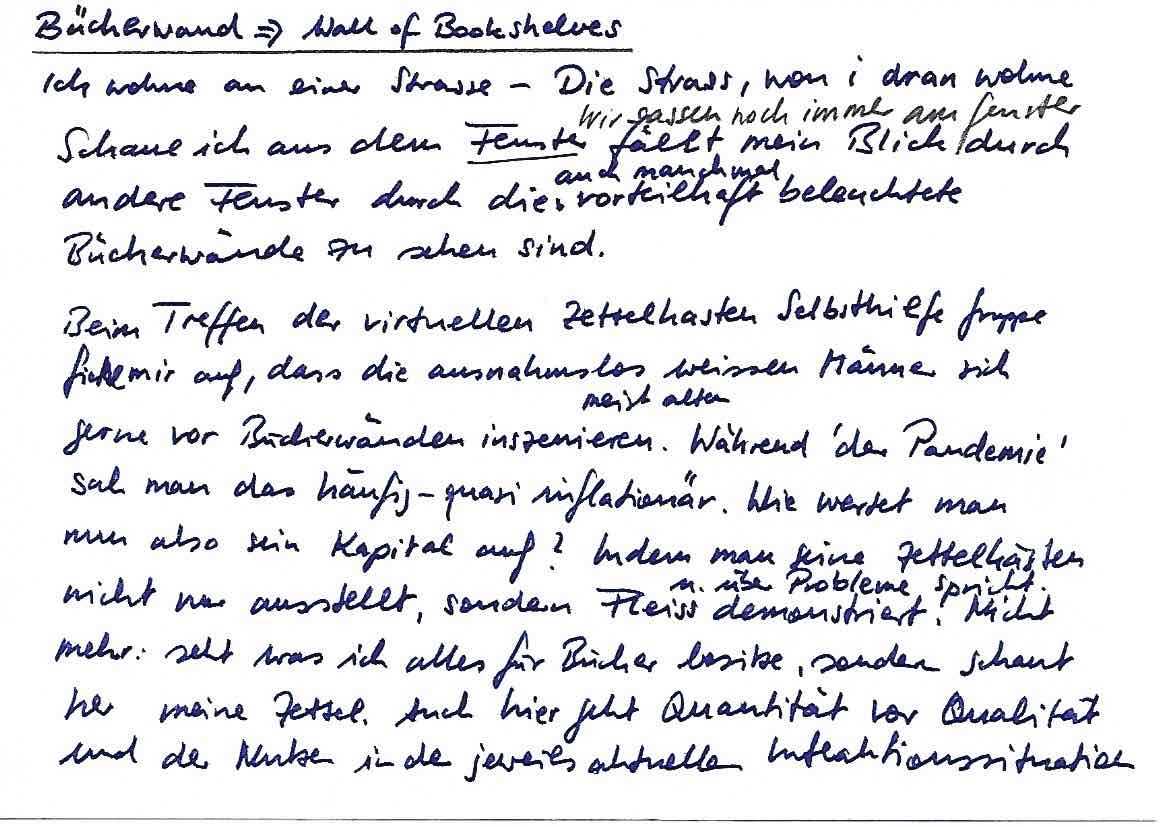 Bücherwand => Wall of Bookshelves
Ich wohne an einer Strasse – Die Strass, won i dran wohne
Wir gassen noch immer am Fenster
Schaue ich aus dem Fenster fällt mein Blick durch
auch manchmal
andere Fenster durch die vorteilhaft beleuchtete
Bücherwände zu sehen sind.
Beim Treffen der virtuellen Zettelkasten Selbsthilfe gruppe
fiel mir auf, dass die ausnahmslos weissen Männer sich
meist alten
gerne vor Bücherwänden inszenieren. Während 'der Pandemie'
sah man das häufig – quasi inflationär. Wie wertet man
nun also sein Kapital auf? Indem man seine Zettelkästen
u. über Probleme spricht.
nicht nur ausstellt, sondern Fleiss demonstriert! Nicht
mehr: seht was ich alles für Bücher besitze, sondern schaut
her meine Zettel. Auch hier geht Quantität vor Qualität
und der Nutzen in der jeweils aktuellen Interaktionssituation